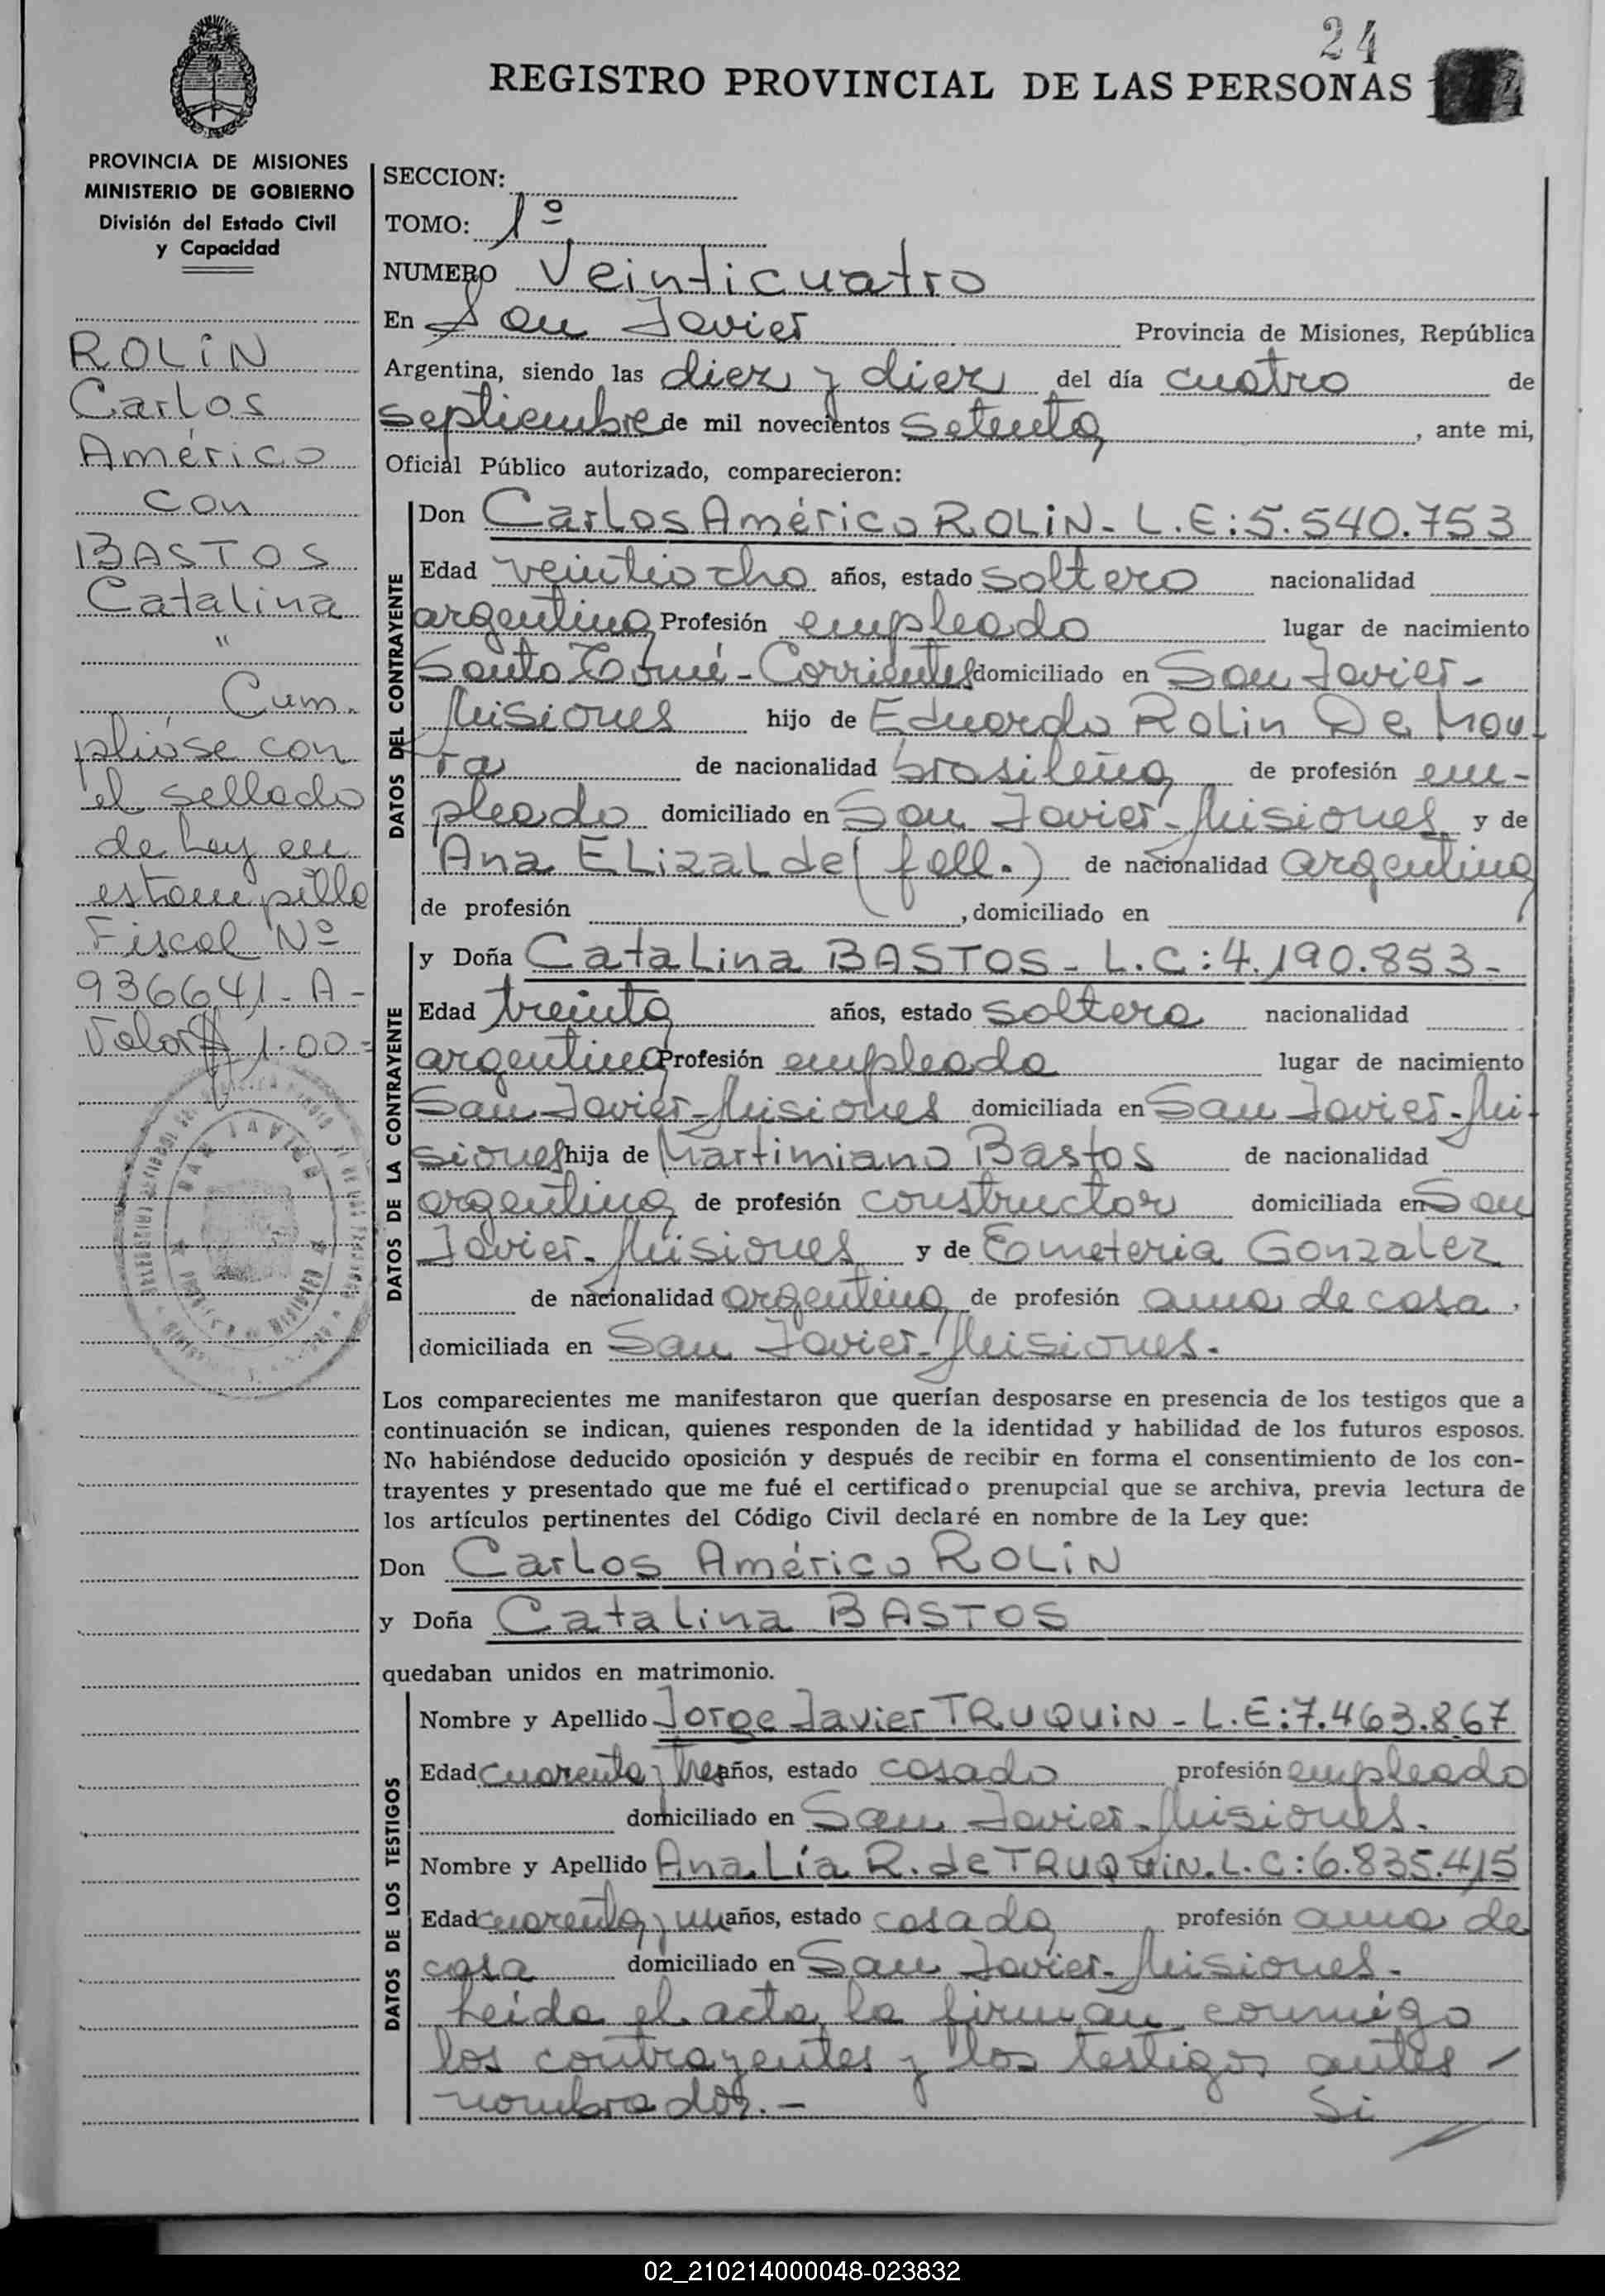 24
REGISTRO PROVINCIAL DE LAS PERSONAS
PROVINCIA DE MISIONES
MINISTERIO DE GOBIERNO
División del Estado Civil
y Capacidad
ROLiN
Carlos
Américo
con
BASTOS
Catalina
"
Cum-
plióse con
el sellado
de Ley en
estampilla
Fiscal Nº
936641-A-
Valor $ 1.00=
SAN JAVIER
SECCION:
TOMO: 1º
NUMERO Veinticuatro
En San Javier Provincia de Misiones, República
Argentina, siendo las diez y diez del día cuatro de
septiembre de mil novecientos setenta, ante mi,
Oficial Público autorizado, comparecieron:
DATOS DEL CONTRAYENTE
Don Carlos Américo ROLiN- L.E:5.540.753
Edad veintiocho años, estado soltero nacionalidad
argentina, Profesión empleado lugar de nacimiento
Santo Tomé-Corrientes domiciliado en San Javier-
Misiones hijo de Eduardo Rolin De Mou-
ra de nacionalidad brasileña, de profesión em-
pleado domiciliado en San Javier-Misiones y de
Ana ELizaLde (fall.) de nacionalidad argentina,
de profesión , domiciliado en
DATOS DE LA CONTRAYENTE
y Doña Catalina BASTOS- L.C:4.190.853-
Edad treinta años, estado soltera nacionalidad
argentina Profesión empleada lugar de nacimiento
San Javier-Misiones domiciliada en San Javier-Mi-
siones hija de Martimiano Bastos de nacionalidad
argentina, de profesión constructor domiciliada en San
Javier-Misiones y de Emeteria Gonzalez
de nacionalidad argentina, de profesión ama de casa,
domiciliada en San Javier-Misiones.
Los comparecientes me manifestaron que querían desposarse en presencia de los testigos que a
continuación se indican, quienes responden de la identidad y habilidad de los futuros esposos.
No habiéndose deducido oposición y después de recibir en forma el consentimiento de los con-
trayentes y presentado que me fué el certificado prenupcial que se archiva, previa lectura de
los artículos pertinentes del Código Civil declaré en nombre de la Ley que:
Don Carlos Américo ROLiN
y Doña Catalina BASTOS
quedaban unidos en matrimonio.
DATOS DE LOS TESTIGOS
Nombre y Apellido Jorge Javier TRUQUiN- L.E:7.463.867
Edad cuarenta y tres años, estado casado profesión empleado
domiciliado en San Javier-Misiones.
Nombre y Apellido Ana Lía R. de TRUQUiN. L.C:6.835.415
Edad cuarenta y un años, estado casada, profesión ama de
casa domiciliado en San Javier-Misiones-
Leída el acta, la firman conmigo
los contrayentes y los testigos antes
nombrados.-
Si
02_210214000048-023832